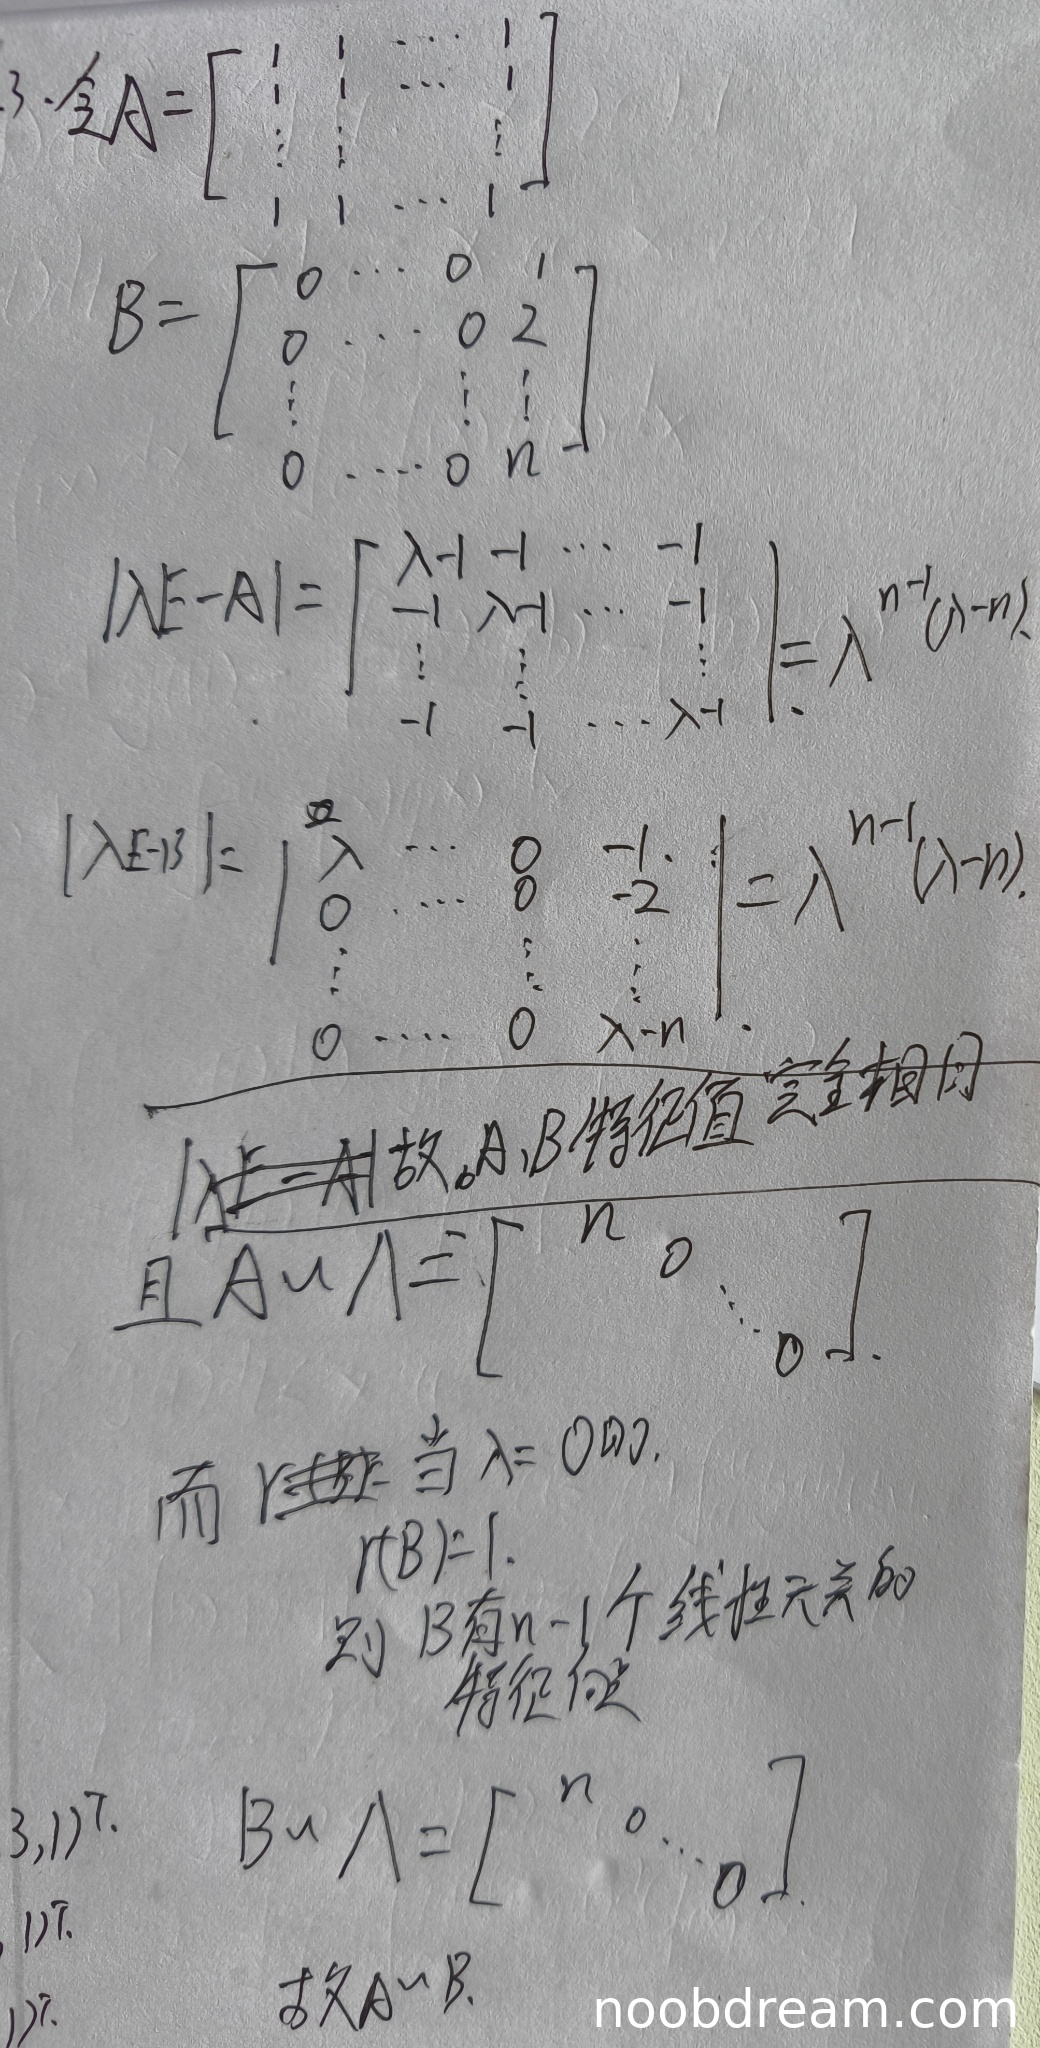 3. 令A = [ 1 1 ⋯ 1
1 1 ⋯ 1
⋮ ⋮ ⋮
1 1 ⋯ 1 ]
B = [ 0 ⋯ 0 1
0 ⋯ 0 2
⋮ ⋮ ⋮
0 ⋯ 0 n ]
|λE-A| = | λ-1 -1 ⋯ -1
-1 λ-1 ⋯ -1
⋮ ⋮ ⋮
-1 -1 ⋯ λ-1 | = λ^{n-1}(λ-n).
|λE-B| = | λ ⋯ 0 -1
0 ⋯ 0 -2
⋮ ⋮ ⋮
0 ⋯ 0 λ-n | = λ^{n-1}(λ-n).
故A、B特征值完全相同
且 A∼Λ = [ n 0 ⋱ 0 ].
而 当λ=0时.
r(B)=1.
则 B有n-1个线性无关的
特征向量
B∼Λ = [ n 0 ⋱ 0 ].
故A∼B.
3,1)ᵀ.
,1)ᵀ.
1)ᵀ.
noobdream.com